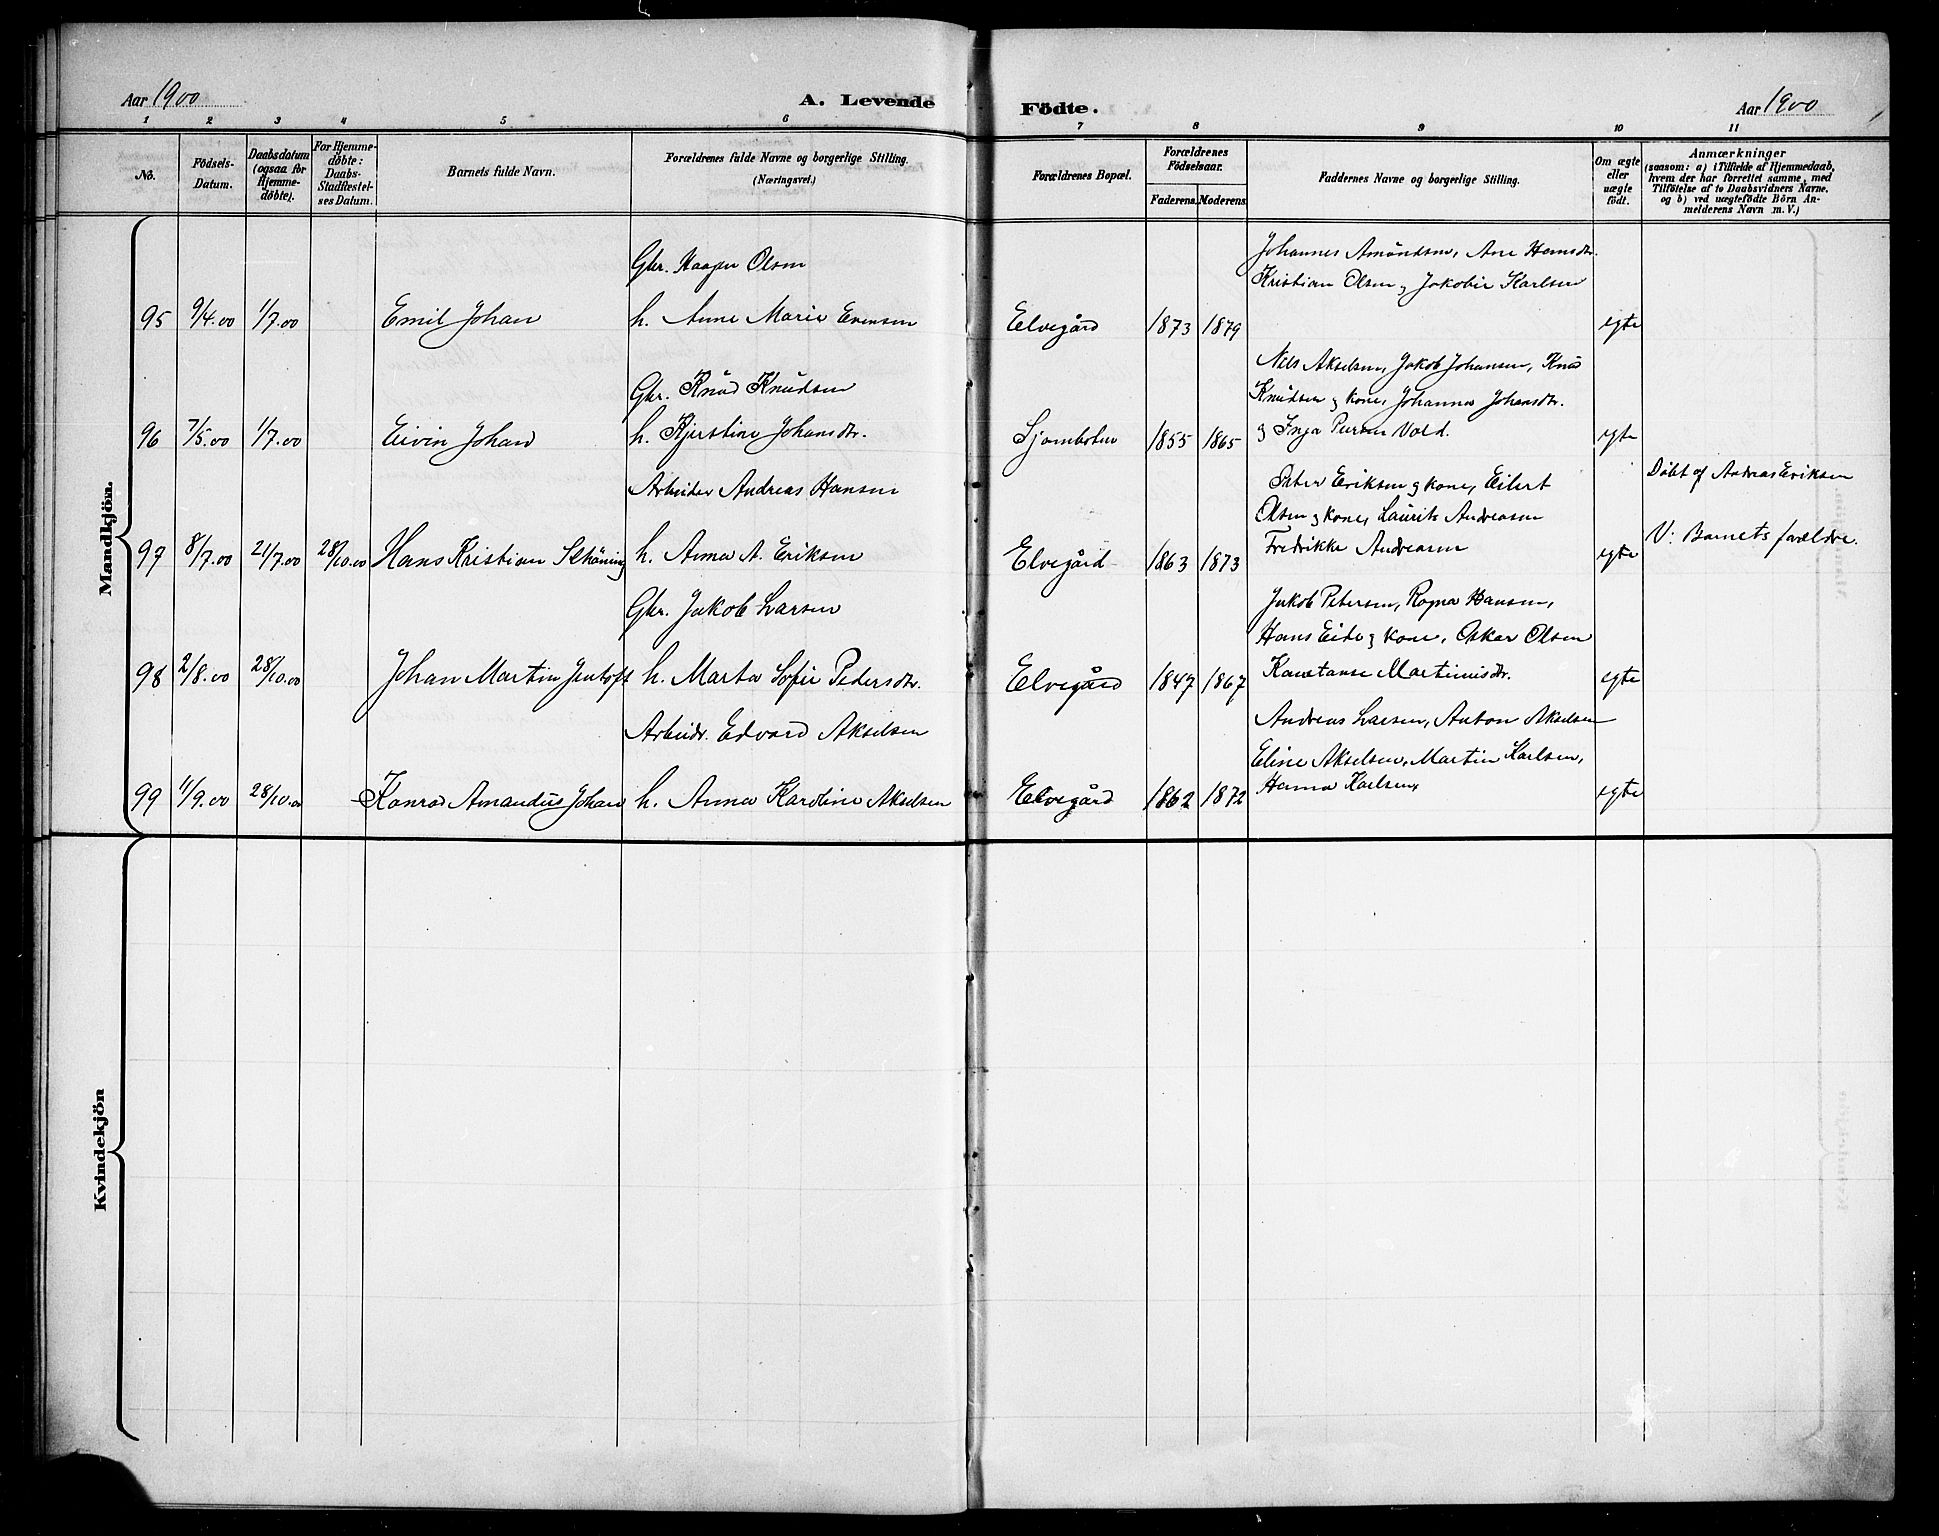 Aar 1900
A. Levende
Födte.
Aar 1900
1 2 3 4 5 6 7 8 9 10 11
No.
Födsels-
Datum.
Daabsdatum
(ogsaa for
Hjemme-
döbte).
For Hjemme-
döbte:
Daabs-
Stadfæstel-
ses Datum.
Barnets fulde Navn.
Forældrenes fulde Navne og borgerlige Stilling.
(Næringsvei.)
Forældrenes Bopæl.
Forældrenes
Födselsaar.
Faderens. Moderens.
Faddernes Navne og borgerlige Stilling.
Om ægte
eller
uægte
födt.
Anmærkninger
(saasom: a) i Tilfælde af Hjemmedaab,
hvem der har forrettet samme, med
Tilföielse af to Daabsvidners Navne,
og b) ved uægtefödte Börn An-
melderens Navn m. V.)
Mandkjön.
Gbr. Haagen Olsen
Johannes Amundsen, Ane Hansdtr.
Kristian Olsen og Jakobie Karlsen
95 9/4.00 1/7.00 Emil Johan h. Anne Marie Evensen Elvegård 1873 1879 egte
Gbr. Knud Knudsen
Nils Akselsen, Jakob Johansen, Knud
Knudsen og kone, Johanna Johansdtr.
96 7/5.00 1/7.00 Eivin Johan h. Kjerstine Johansdtr. 1855 1865 og Inga Vold. egte
Arbeider Andreas Hansen
Peter Eriksen og kone, Eilert
Olsen og kone, Laurits Andreasen
Döbt af Andreas Eriksen
97 8/7.00 21/7.00 28/10.00 Hans Kristian Schöning h. Anna A. Eriksen Elvegård 1863 1873 Fredrikke Andreasen egte V: Barnets forældre.
Gbr. Jakob Larsen
Jakob Petersen, Ragna Hansen,
Hans Eide og kone, Oskar Olsen
98 2/8.00 28/10.00 Johan Martin Jentoft h. Marta Sofie Pedersdtr. Elvegård 1847 1867 Konstanse Martinusdtr. egte
Arbeidr. Edvard Akselsen
Andreas Larsen, Anton Akselsen
Eline Akselsen, Martin Karlsen,
99 11/9.00 28/10.00 Konrad Amandus Johan h. Anna Karoline Akselsen Elvegård 1862 1872 Hanna Karlsen, egte
Kvindekjön